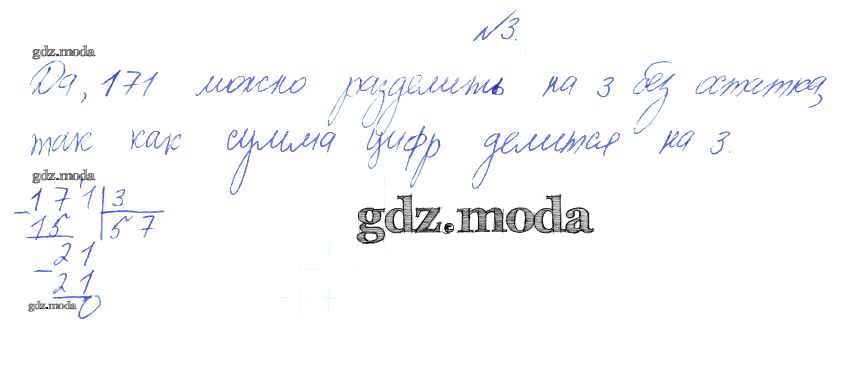 №3.
gdz.moda
Да, 171 можно разделить на 3 без остатка,
так как сумма цифр делится на 3.
gdz.moda
-171|3
15 |57
gdz.moda
-21
21
gdz.moda
0